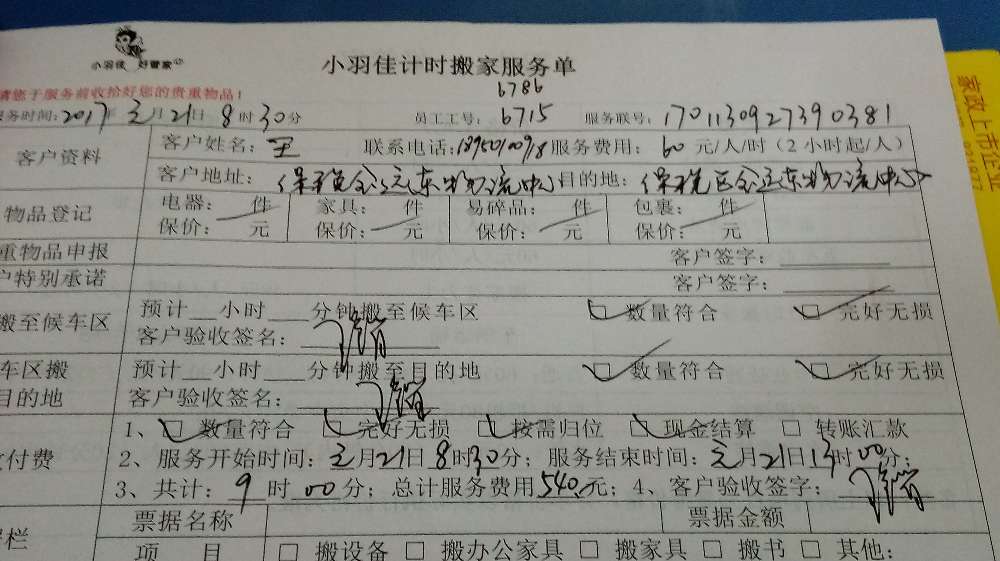 小羽佳 好管家
小羽佳计时搬家服务单
请您于服务前收拾好您的贵重物品!
6786
服务时间: 2017年元月21日8时30分 员工工号: 6715 服务联号: 1701130927390381
客户资料
客户姓名: 王 联系电话: 服务费用: 60 元/人/时(2小时起/人)
客户地址: 保税区金远东物流中心 目的地: 保税区金远东物流中心
物品登记
电器: 件 家具: 件 易碎品: 件 包裹: 件
保价: 元 保价: 元 保价: 元 保价: 元
重物品申报 客户签字:
户特别承诺 客户签字:
搬至候车区
预计__小时___分钟搬至候车区 □ 数量符合 □ 完好无损
客户验收签名:
车区搬
目的地
预计__小时___分钟搬至目的地 □ 数量符合 □ 完好无损
客户验收签名:
1、□ 数量符合 □ 完好无损 □ 按需归位 □ 现金结算 □ 转账汇款
付费
2、服务开始时间: 元月21日8时30分; 服务结束时间: 元月21日13时00分;
3、共计: 9 时 00分; 总计服务费用540元; 4、客户验收签字:
栏
票据名称 票据金额
项 目 □ 搬设备 □ 搬办公家具 □ 搬家具 □ 搬书 □ 其他:
家政上市企业